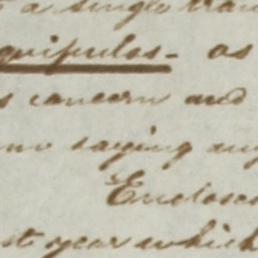 a single
quipulos - as
concern and
saying any
Encloses
year which